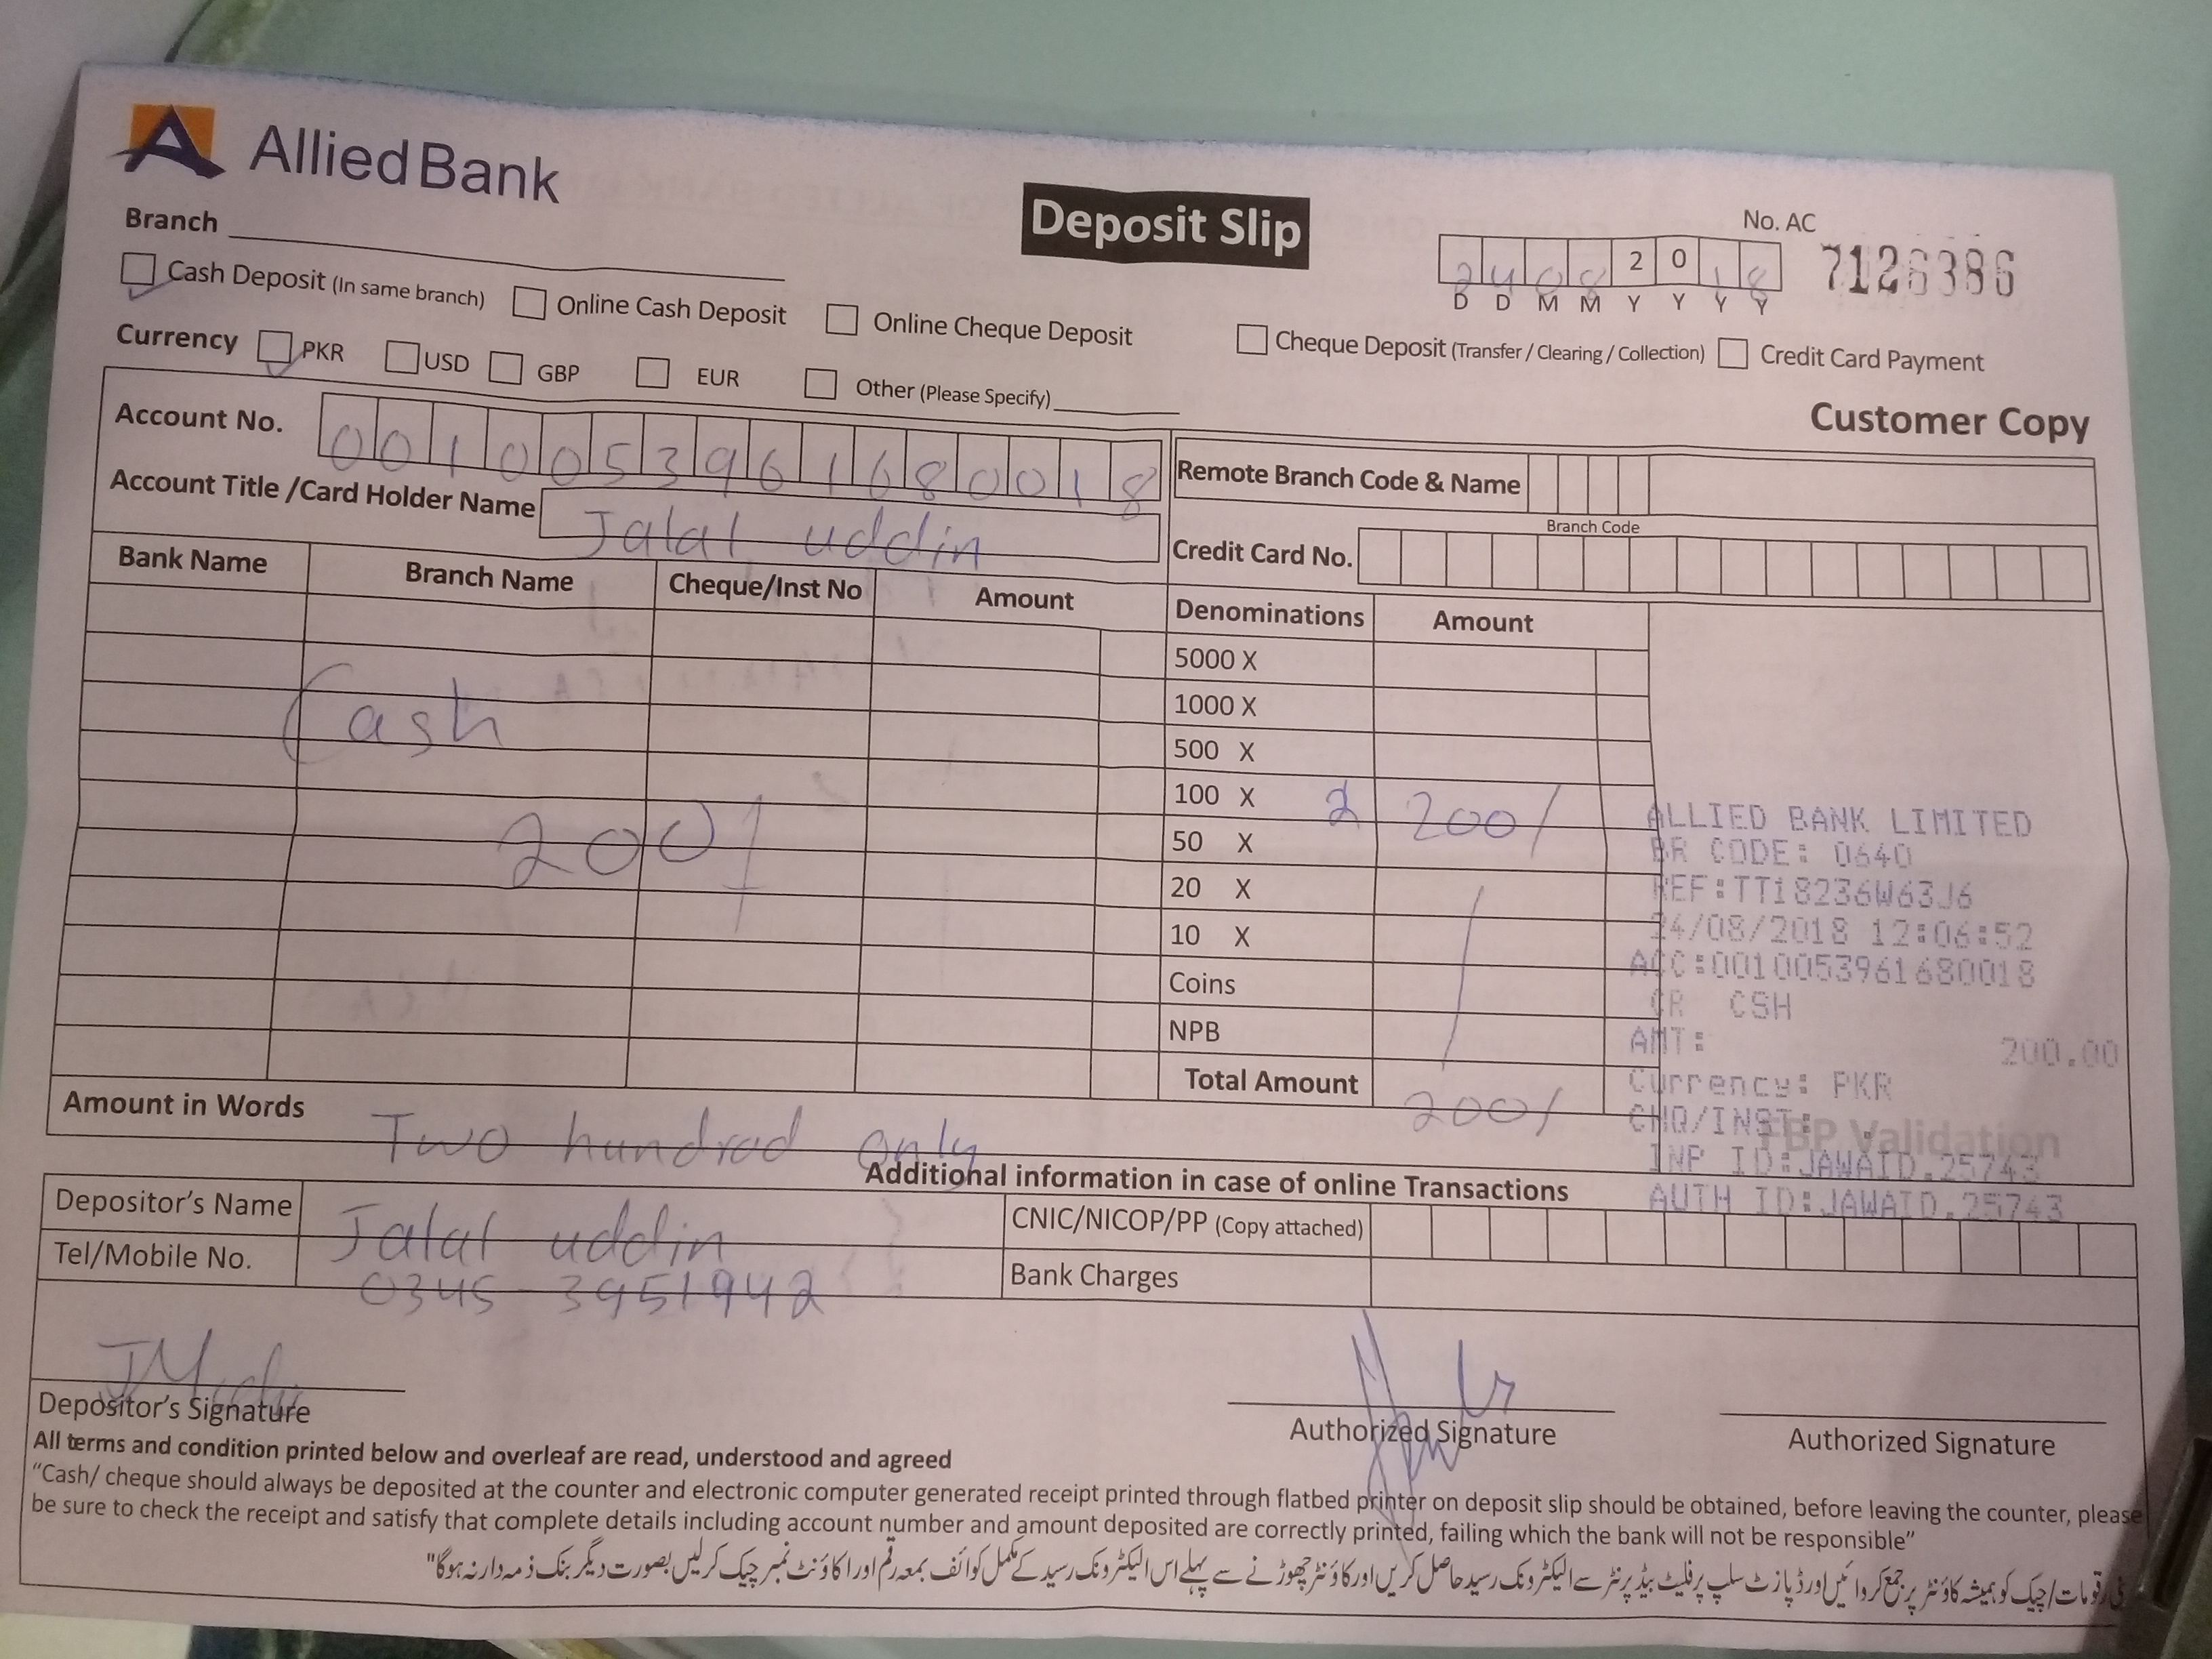 Allied Bank
Deposit Slip
No. AC 7126386
Branch
2 4 0 8 2 0 1 8
D D M M Y Y Y Y
Cash Deposit (In same branch) Online Cash Deposit Online Cheque Deposit Cheque Deposit (Transfer / Clearing / Collection) Credit Card Payment
Currency PKR USD GBP EUR Other (Please Specify)
Customer Copy
Account No. 0010053961680018
Remote Branch Code & Name
Branch Code
Account Title /Card Holder Name Jalal uddin
Credit Card No.
Bank Name Branch Name Cheque/Inst No Amount
Denominations Amount
5000 X
1000 X
Cash
500 X
100 X 2 200/
200/
50 X
20 X
10 X
Coins
NPB
Total Amount 200/
ALLIED BANK LIMITED
BR CODE: 0640
REF:TT18236W63J6
24/08/2018 12:06:52
ACC:0010053961680018
CR CSH
AMT: 200.00
Currency: PKR
CHQ/INST:
FBP Validation
INP ID:JAWAID.25743
AUTH ID:JAWAID.25743
Amount in Words Two hundrad only
Additional information in case of online Transactions
Depositor's Name Jalal uddin
CNIC/NICOP/PP (Copy attached)
Tel/Mobile No. 0345-3951942
Bank Charges
Depositor's Signature
Authorized Signature
Authorized Signature
All terms and condition printed below and overleaf are read, understood and agreed
"Cash/ cheque should always be deposited at the counter and electronic computer generated receipt printed through flatbed printer on deposit slip should be obtained, before leaving the counter, please
be sure to check the receipt and satisfy that complete details including account number and amount deposited are correctly printed, failing which the bank will not be responsible"
رقومات/چیک کو ہمیشہ کاؤنٹر پر جمع کروائیں اور ڈپازٹ سلپ پر فلیٹ بیڈ پرنٹر سے الیکٹرونک رسید حاصل کریں اور کاؤنٹر چھوڑنے سے پہلے اس الیکٹرونک رسید کے مکمل کوائف بمعہ رقم اور اکاؤنٹ نمبر چیک کر لیں بصورت دیگر بنک ذمہ دار نہ ہوگا"